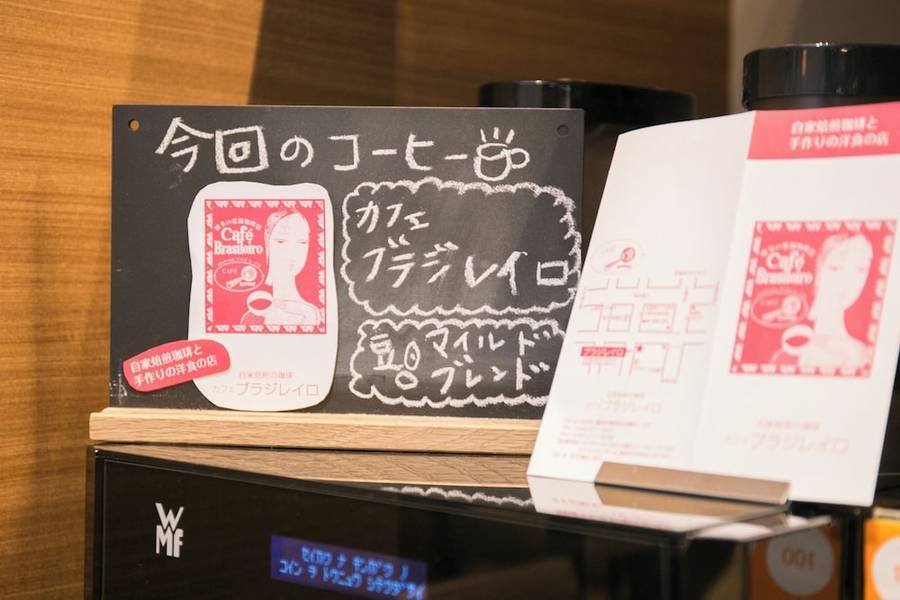 今回のコーヒー
カフェ
ブラジレイロ
豆
マイルド
ブレンド
Café
Brasileiro
CAFÉ
自家焙煎珈琲と
手作りの洋食の店
自家焙煎の珈琲
カフェ ブラジレイロ
自家焙煎珈琲と
手作りの洋食の店
Café
Brasileiro
ブラジレイロ
ブラジレイロ
ブラジレイロ
WMF
セイカク ナ キンガク ノ
コイン ヲ トウニュウ シテクダサイ
100